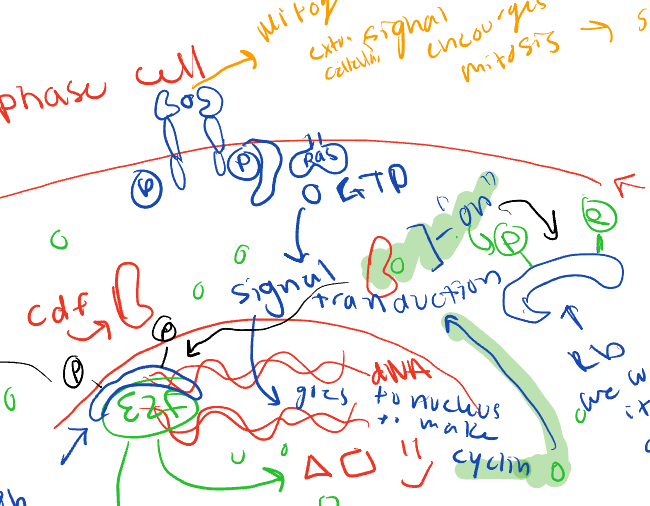 mitog
extra
cellular
signal
encourges
mitosis
s
phase cell
P
P
Ras
GTP
"on"
P
P
signal
tranduction
cdf
P
P
Rb
we w
it
E2F
goes
dNA
to nucleus
to make
cyclin